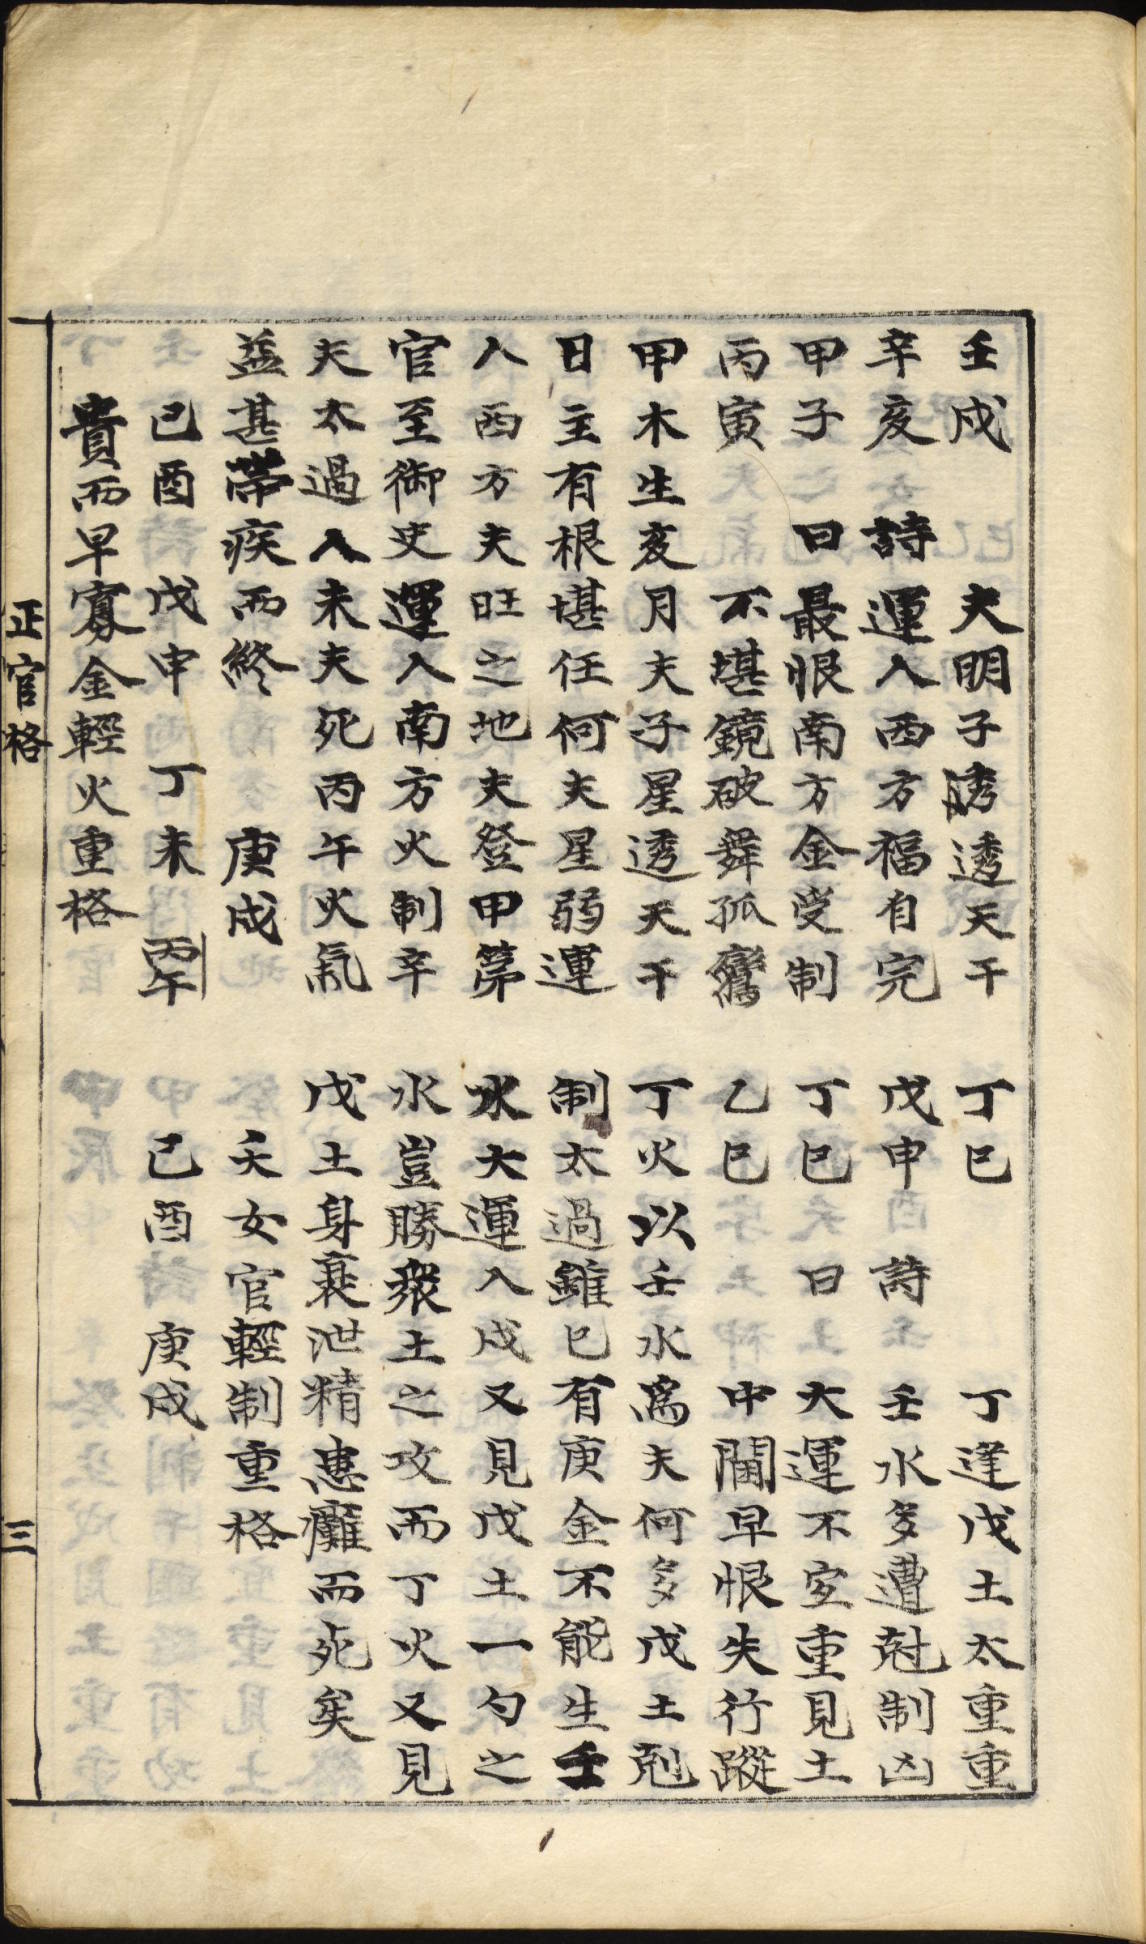 壬戌 夫明子透透天干
辛亥 詩 運入西方福自完
甲子 曰 最恨南方金受制
丙寅 不堪鏡破舞孤鸞
甲木生亥月夫子星透天干
日主有根堪任何夫星弱運
入西方夫旺之地夫登甲第
官至御史運入南方火制辛
夫太過入未夫死丙午火氣
益甚帶疾而終 庚戌
己酉 戊申 丁未 丙午
貴而早寡金輕火重格
丁巳 丁逢戊土太重重
戊申 詩 壬水多遭尅制凶
丁巳 曰 大運不宜重見土
乙巳 中閨早恨失行蹤
丁火以壬水為夫何多戊土剋
制太過雖巳有庚金不能生壬
水大運入戌又見戊土一勺之
水豈勝衆土之攻而丁火又見
戊土身衰泄精患癱而死矣
夭女官輕制重格
己酉 庚戌
正官格 三